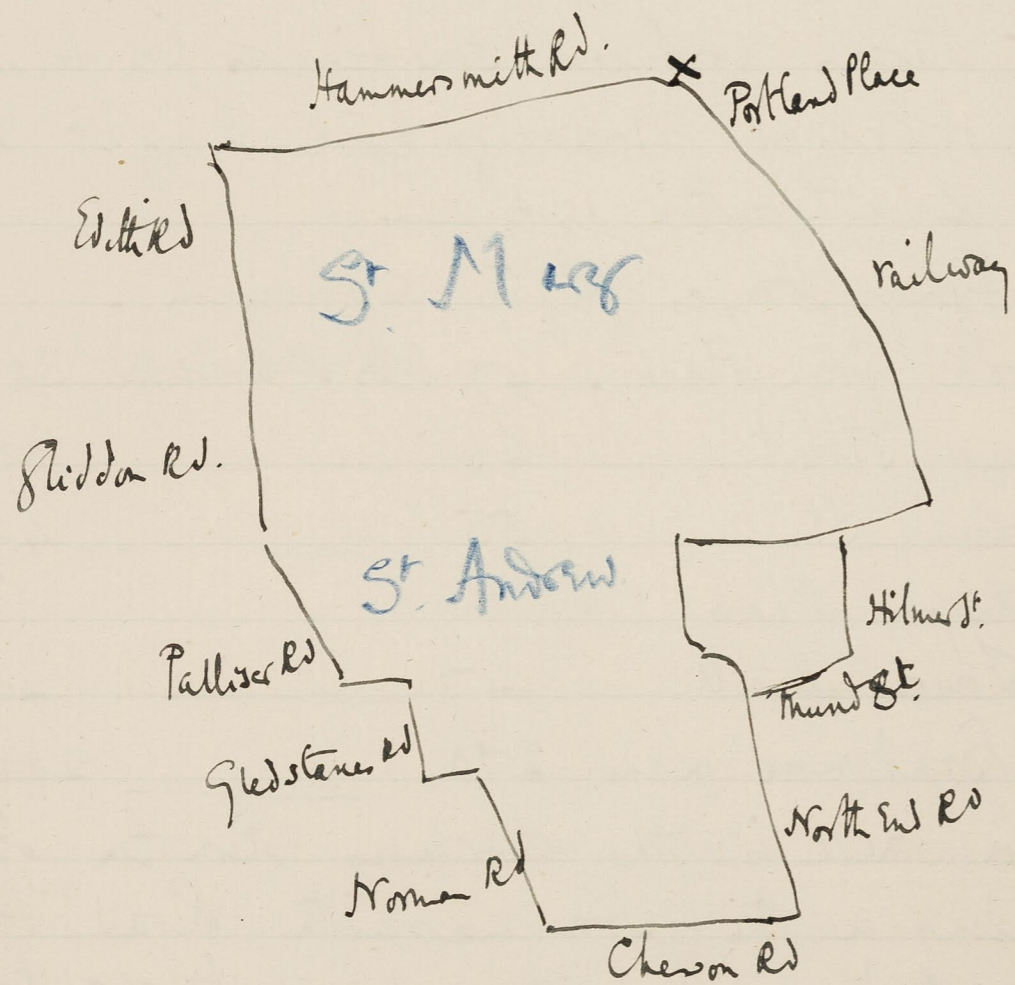 Hammersmith Rd.
Portland Place
Edith Rd
St. Mary
railway
Gliddon Rd.
St. Andrew
Hilmer St.
Palliser Rd
Thund St.
Gledstanes Rd
North End Rd
Norman Rd
Chevon Rd